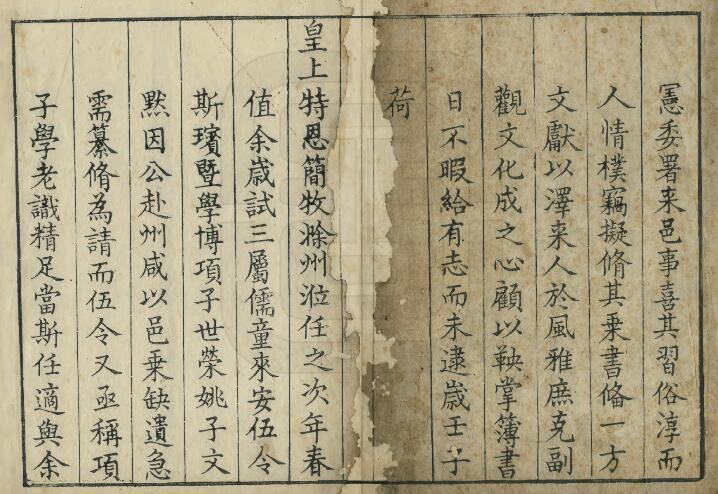 憲委署来邑事喜其習俗淳而
人情樸竊擬脩其乗書俻一方
文獻以澤来人於風雅庶克副
觀文化成之心顧以鞅掌簿書
日不暇給有志而未逮歳壬子
荷
皇上特恩簡牧滁州涖任之次年春
值余歳試三屬儒童來安伍令
斯璸暨學博項子世榮姚子文
默因公赴州咸以邑乗缺遺急
需纂脩為請而伍令又亟稱項
子學老識精足當斯任適與余